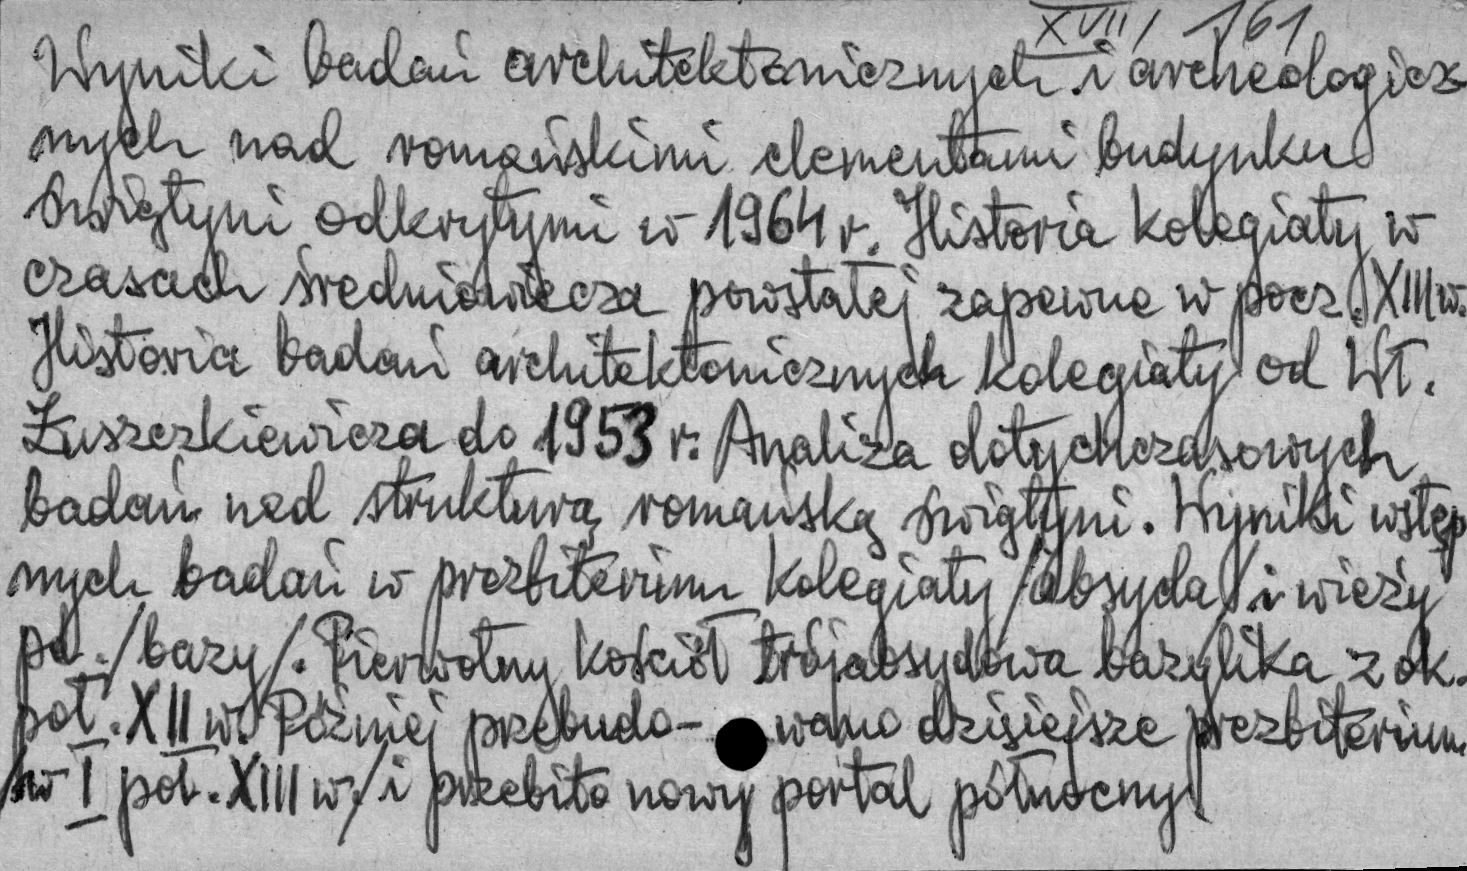 XVII/161
Wyniki badań architektonicznych i archeologicz
nych nad romańskimi elementami budynku
świątyni odkrytymi w 1964 r. Historia kolegiaty w
czasach średniowiecza powstałej zapewne w pocz. XIII w.
Historia badań architektonicznych kolegiaty od Wł.
Łuszczkiewicza do 1953 r. Analiza dotychczasowych
badań nad strukturą romańską świątyni. Wyniki wstęp
nych badań w prezbiterium kolegiaty /absyda/ i wieży
pd. /bazy/. Pierwotny kościół trójabsydowa bazylika z ok.
poł. XII w. Później przebudo- wano dzisiejsze prezbiterium
/w I poł. XIII w./ i przebito nowy portal północny